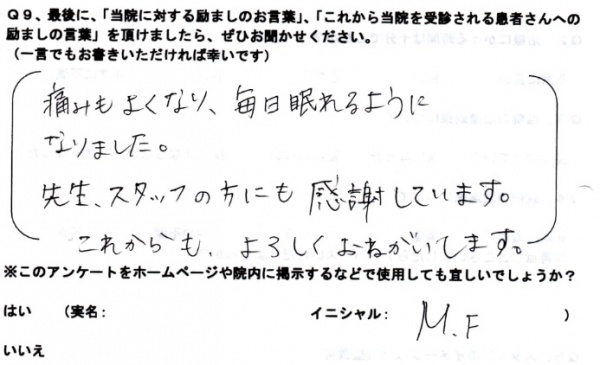 Q9、最後に、「当院に対する励ましのお言葉」、「これから当院を受診される患者さんへの
励ましの言葉」を頂けましたら、ぜひお聞かせください。
（一言でもお書きいただければ幸いです）
痛みもよくなり、毎日眠れるように
なりました。
先生、スタッフの方にも感謝しています。
これからも、よろしくおねがいてします。
※このアンケートをホームページや院内に掲示するなどで使用しても宜しいでしょうか？
はい （実名： イニシャル： M.F ）
いいえ